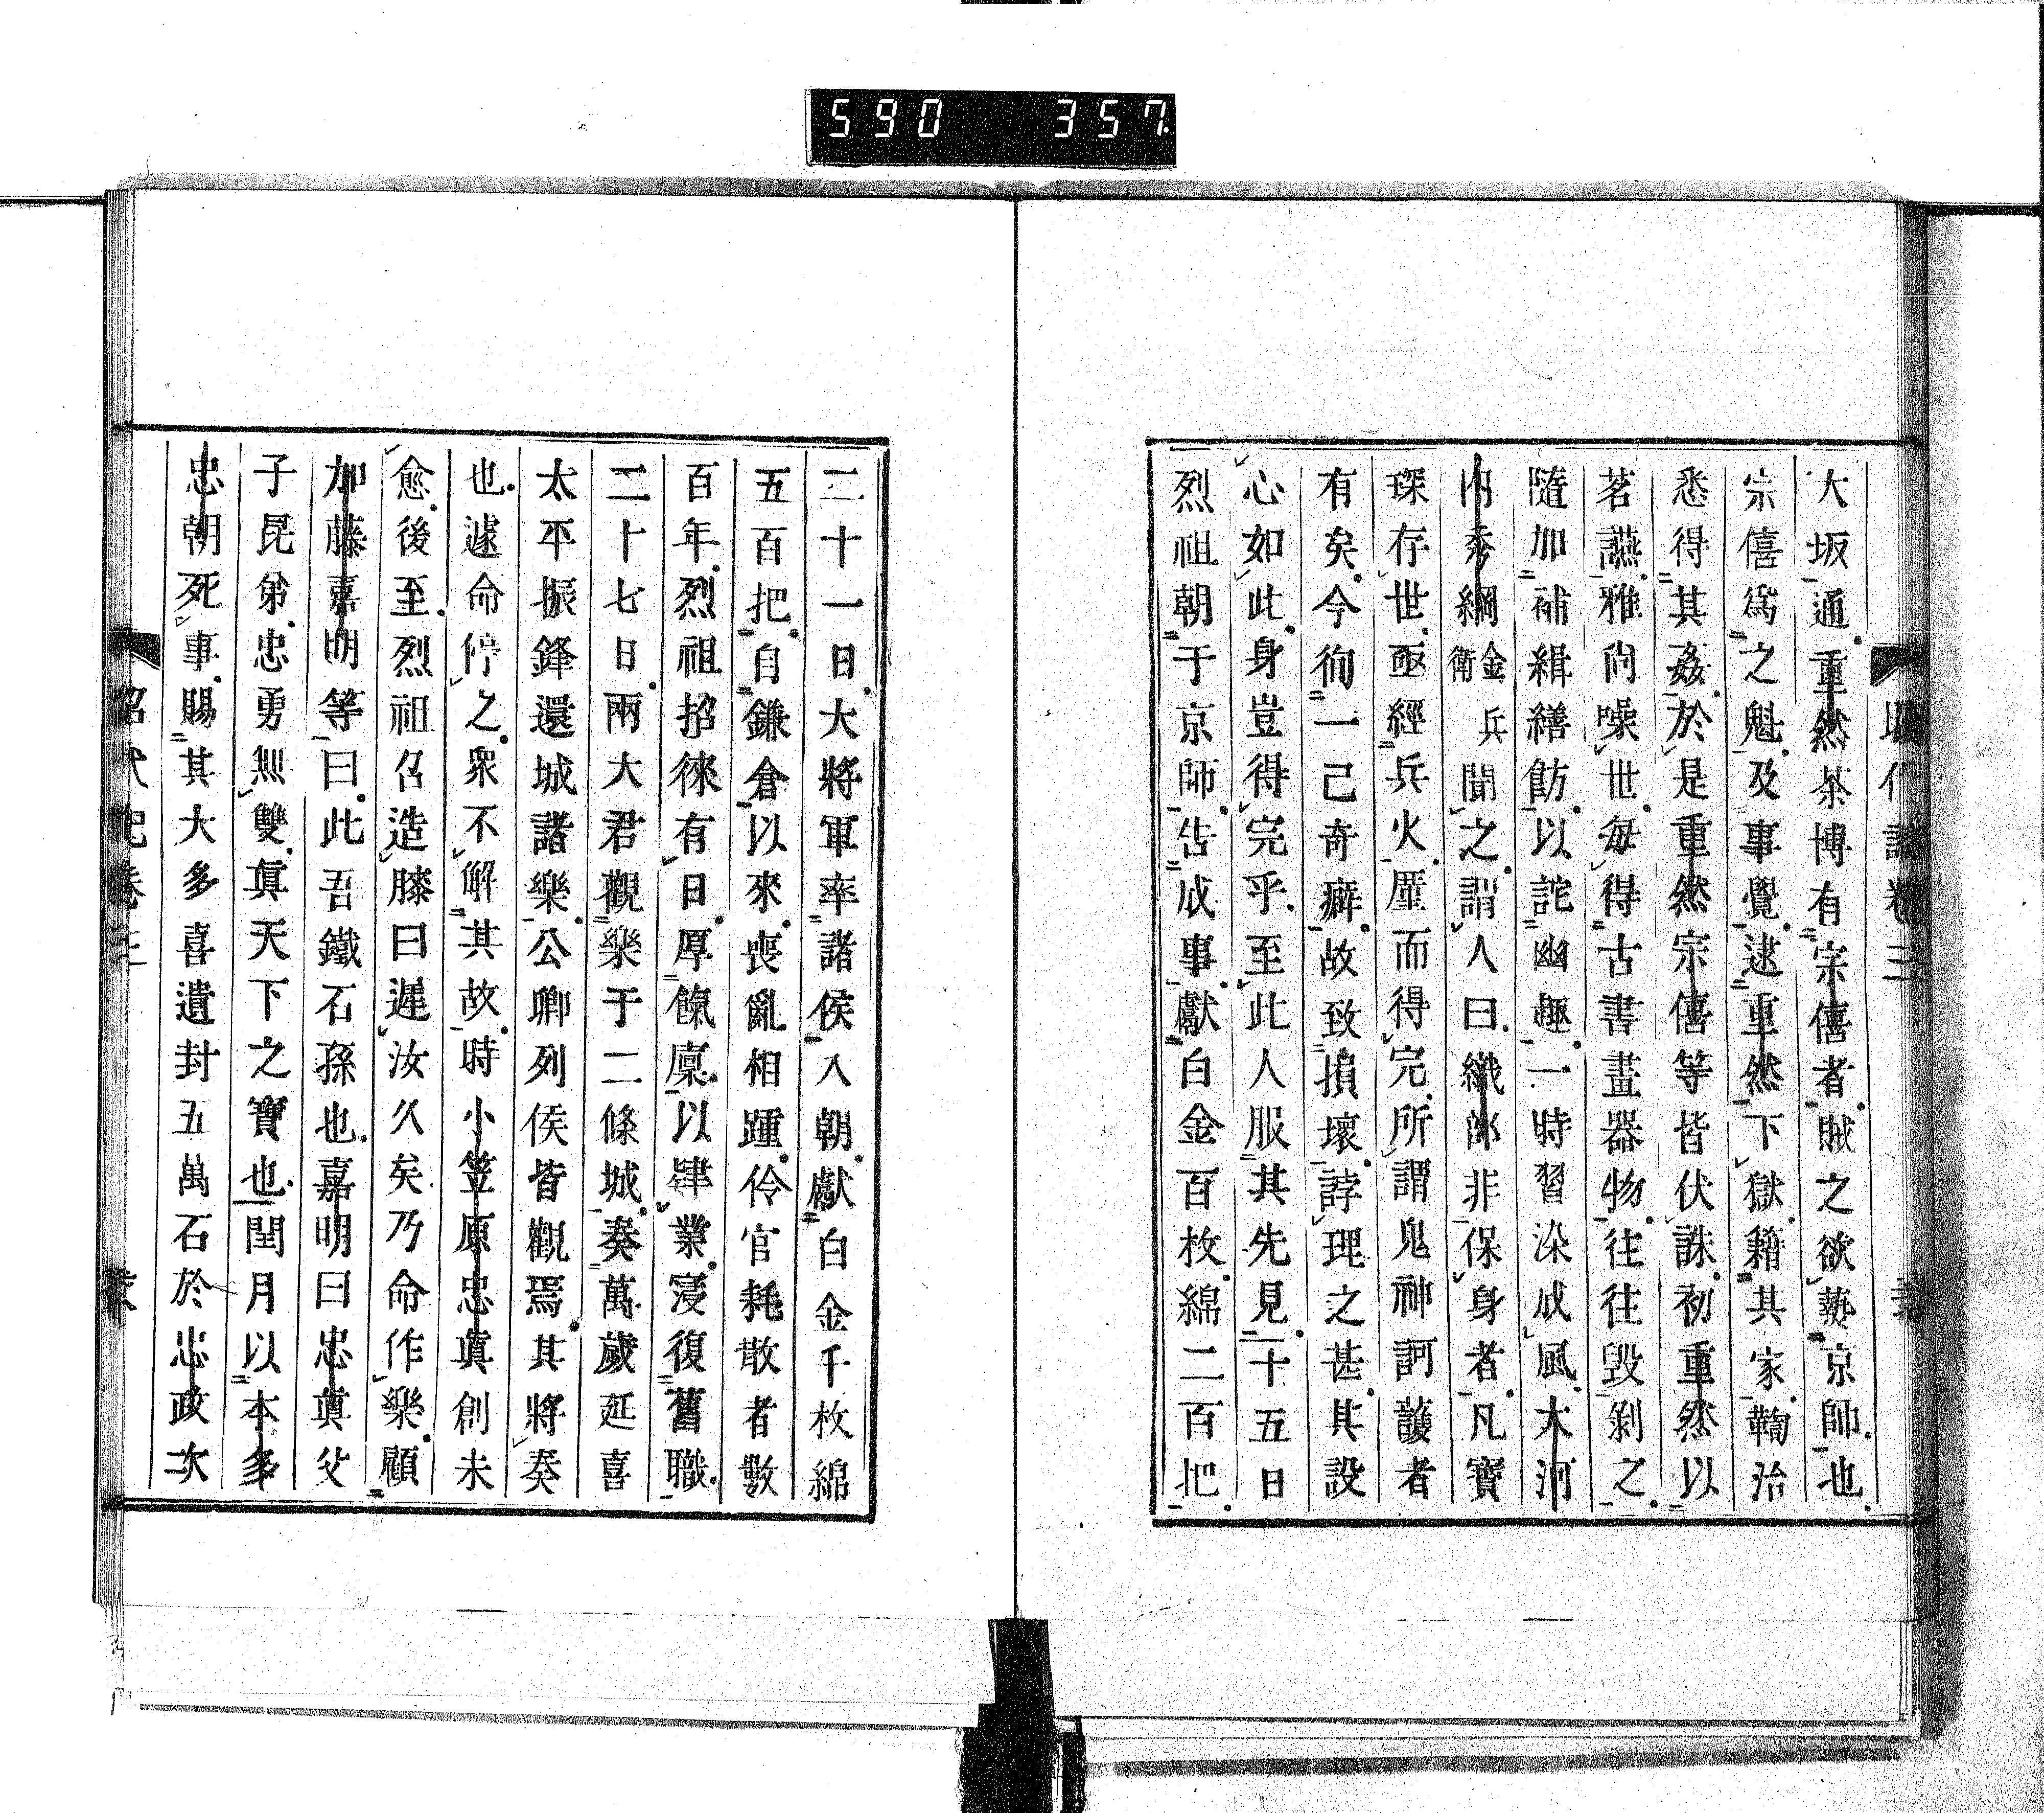 590 357
大坂通重然茶博有宗僖者賊之欲爇京師也
宗僖爲之魁及事覺逮重然下獄籍其家鞫治
悉得其姦於是重然宗僖等皆伏誅初重然以
茗讌雅尚噪世每得古書畫器物往往毀剝之
隨加補緝繕飭以詫幽趣一時習染成風大河
内秀綱金兵衛聞之謂人曰織部非保身者凡寶
琛存世亟經兵火厪而得完所謂鬼神訶護者
有矣今徇一己奇癖故致損壞誖理之甚其設
心如此身豈得完乎至此人服其先見二十五日
烈祖朝于京師告成事獻白金百枚綿二百把
二十一日大將軍率諸侯入朝獻白金千枚綿
五百把自鎌倉以來喪亂相踵伶官耗散者數
百年烈祖招徠有日厚餼廩以肄業寖復舊職
二十七日兩大君觀樂于二條城奏萬歲延喜
太平振鋒還城諸樂公卿列侯皆觀焉其將奏
也遽命停之衆不解其故時小笠原忠眞創未
愈後至烈祖召造膝曰遲汝久矣乃命作樂顧
加藤嘉明等曰此吾鐵石孫也嘉明曰忠眞父
子昆弟忠勇無雙眞天下之寶也閏月以本多
忠朝死事賜其大多喜遺封五萬石於忠政次